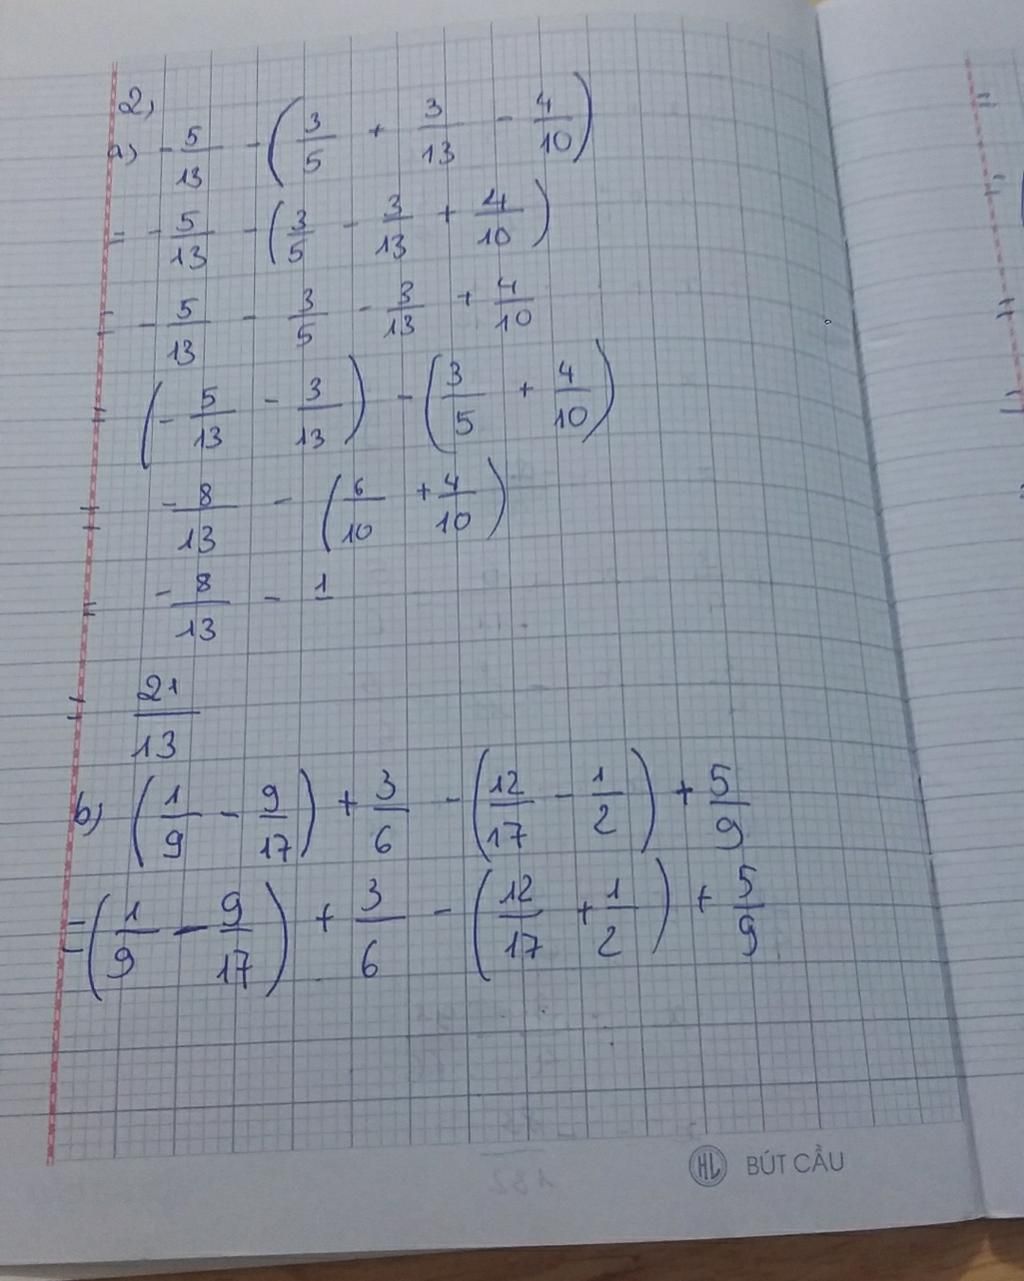 2,
a) -5/13 - (3/5 + 3/13 - 4/10)
= -5/13 - (3/5 - 3/13 + 4/10)
= -5/13 - 3/5 - 3/13 + 4/10
= (-5/13 - 3/13) - (3/5 + 4/10)
= -8/13 - (6/10 + 4/10)
= -8/13 - 1
= 21/13
b) (1/9 - 9/17) + 3/6 - (12/17 - 1/2) + 5/9
= (1/9 - 9/17) + 3/6 - (12/17 + 1/2) + 5/9
HL BÚT CẦU